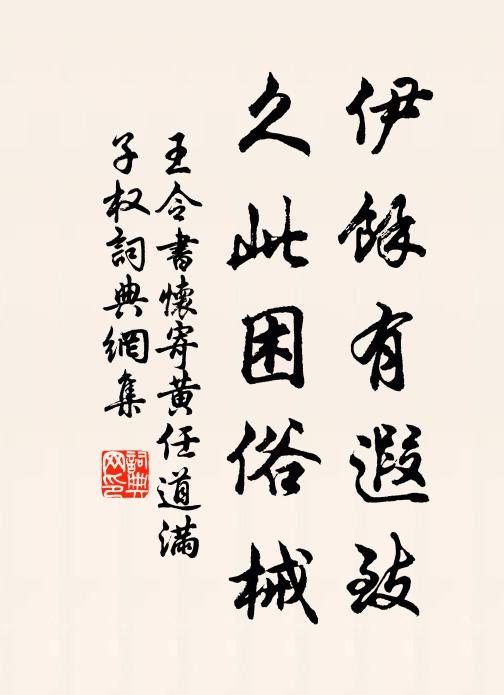 伊餘有遐致
久此困俗械
王令書懷寄黃任道滿
子权詞典網集
詞典
网印